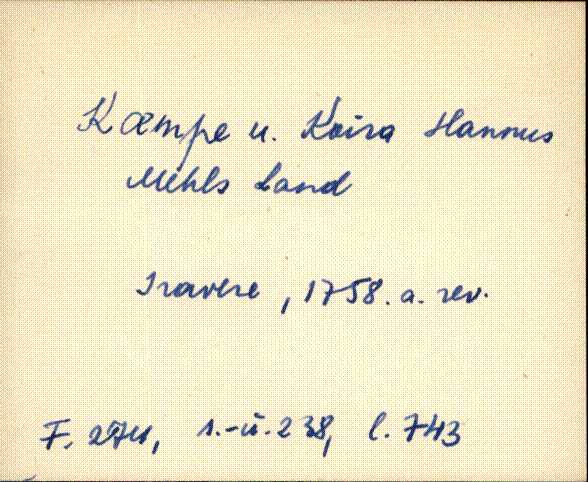 Kæmpe u. Koira Hannus
Mehls Land
Sravere, 1758. a. rev.
F. 274, s.-ü. 238, l. 743